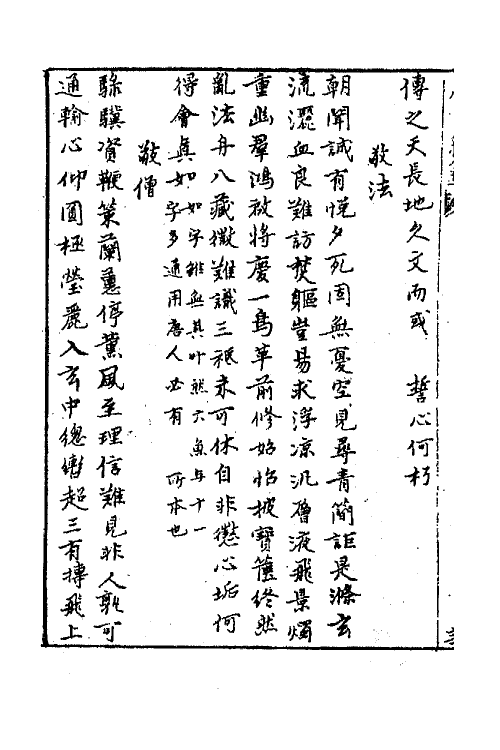 傳之天長地久文而或　誓心何朽
敬法
朝聞誠有悅夕死固無憂空見尋青簡詎是滌玄
流灑血良難訪焚軀豈易求浮涼汎瓊液飛景燭
重幽羣鴻被將慶一鳥革前修始怡披寶篋終然
亂法舟八藏徵難識三祇未可休自非懲心垢何
得會真如如字雜無其叶然六魚與十一
字多通用唐人必有　所本也
敬僧
騄驥資鞭策蘭蕙停薰風至理信難見非人孰可
通輸心仰圓極瑩麗入玄中總轡超三有摶飛上